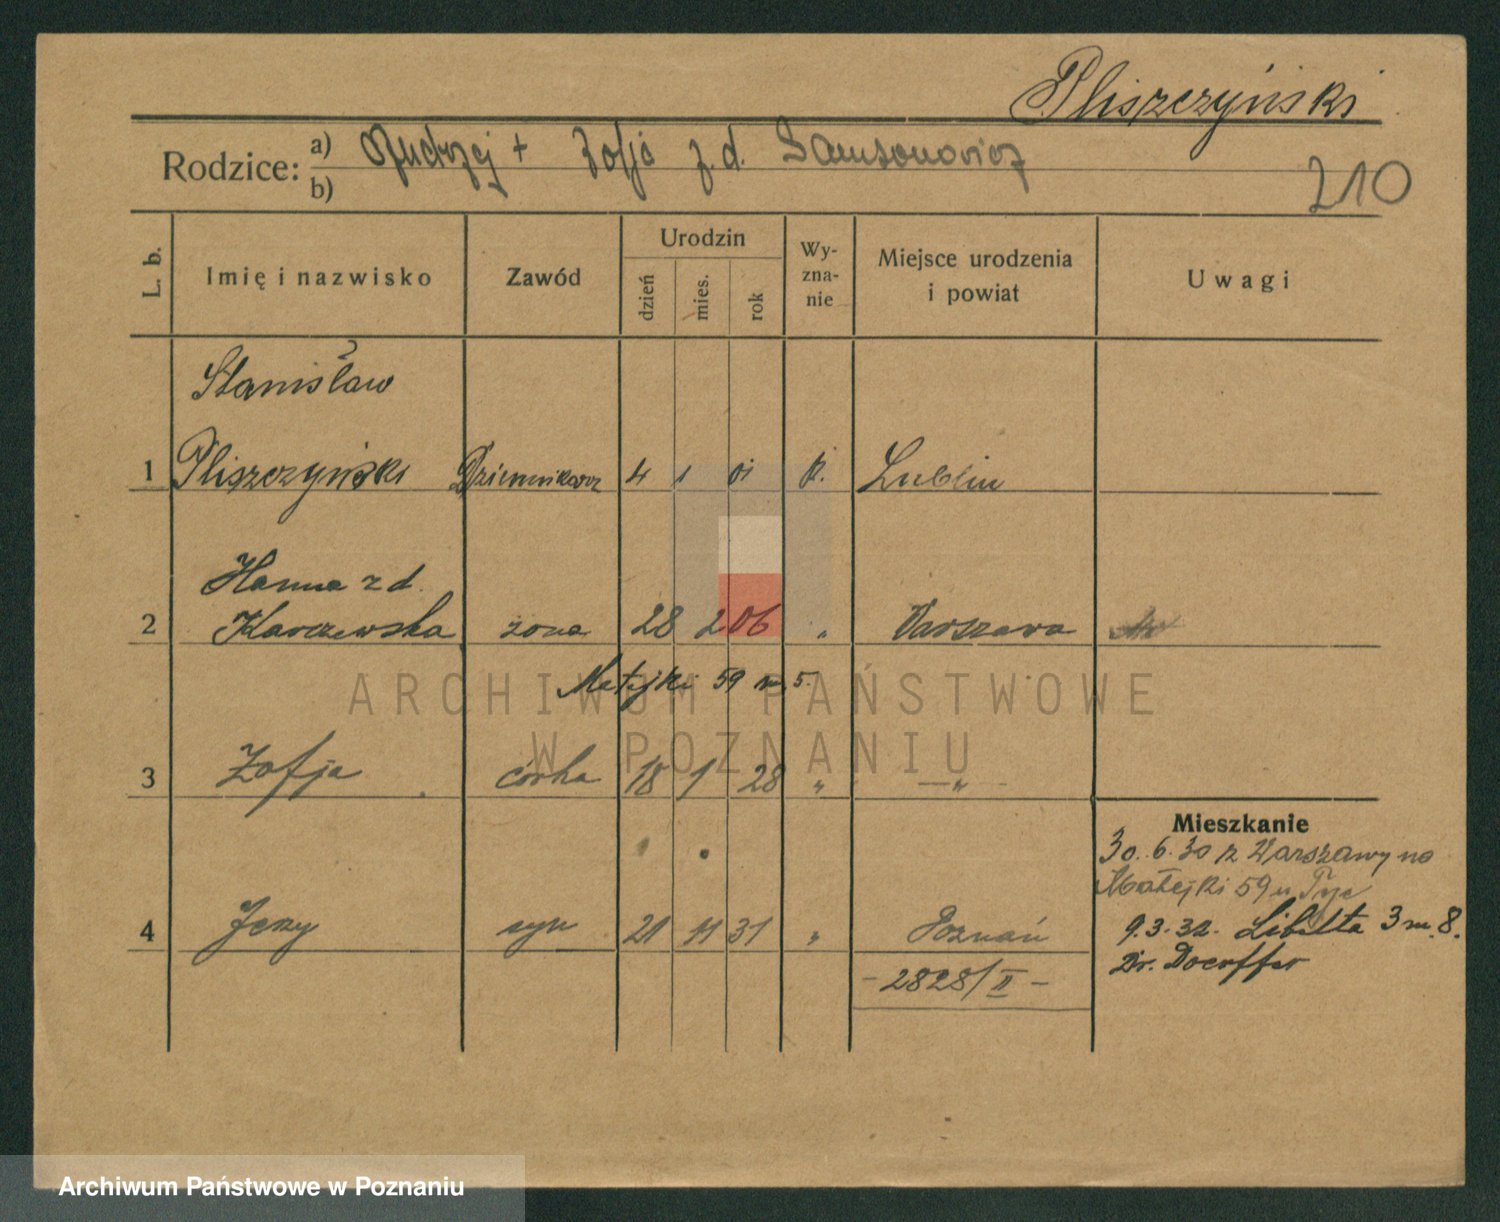 Pliszczyński
Rodzice: a) Andrzej + Zofja z d. Samsonowicz
b)
210
L. b. Imię i nazwisko Zawód Urodzin dzień mies. rok Wy-zna-nie Miejsce urodzenia i powiat Uwagi
Stanisław
1 Pliszczyński Dziennikarz 4 1 01 k. Lublin
Hanna z d.
2 Karczewska żona 28 2 06 " Warszawa
Matejki 59 m. 5.
ARCHIWUM PAŃSTWOWE
W POZNANIU
3 Zofja córka 18 1 28 " — " —
Mieszkanie
30.6.30 z Warszawy na
Matejki 59 u
4 Jerzy syn 21 11 31 " Poznań
9.3.32. Libelta 3 m. 8.
Dr. Doerffer
- 2828/II -
Archiwum Państwowe w Poznaniu